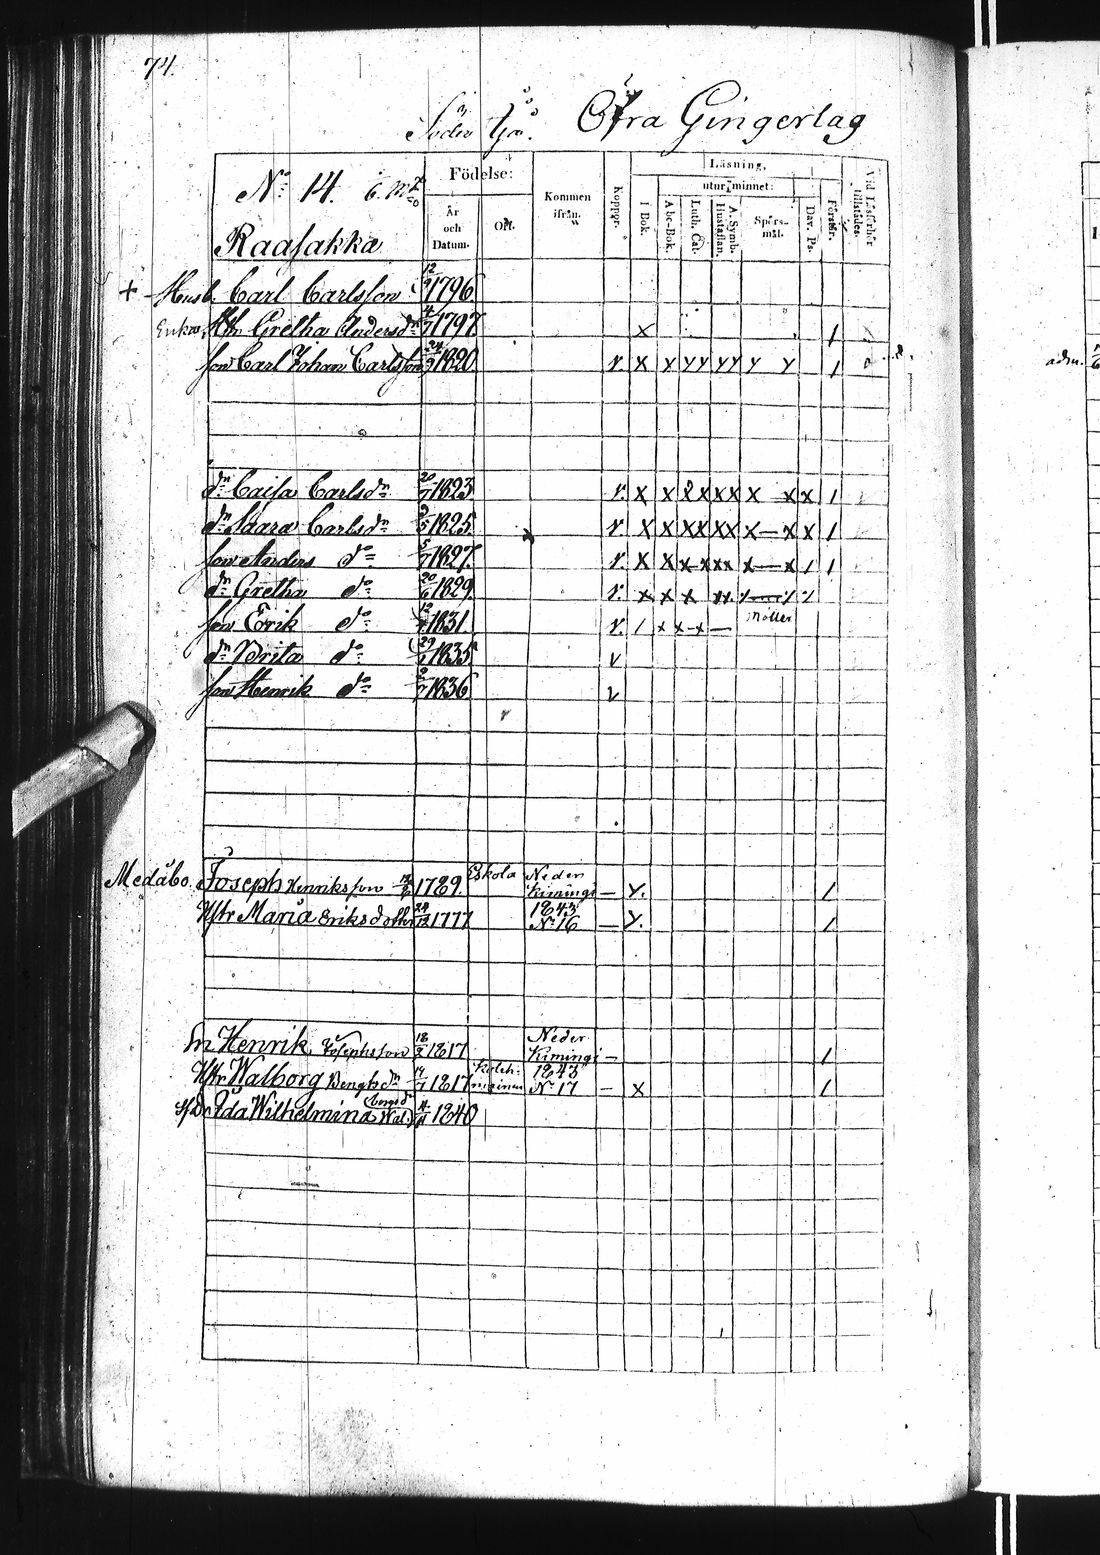 74.
Söder Yå. Öfra Gingerlag
No 14. 6. mtl
Raasakka
Födelse: År och Datum. Ort. Kommen ifrån. Koppor. Läsning, i Bok. utur minnet: A bc-Bok. Luth. Cat. A. Symb. Hustaflan. Spörs-mål. Dav. Ps. Förstår. Vid Läsförhör tillstädes.
+ Husb. Carl Carlsson 12/9 1796
Enka, Hstr Gretha Andersdr 4/7 1797 x 1
son Carl Johan Carlsson 24/9 1820 v. x x y y y y y y 1
dr Caisa Carlsdr 20/7 1823 v. x x 2 x x x x x x 1
dr Saara Carlsdr 3/5 1825 v. x x x x x x x — x x 1
son Anders do 5/7 1827. v. x x x x x x x — x 1 1
dr Gretha do 20/6 1829. v. x x x x x
son Erik do 1831. v. 1 x x x — Möller
dr Brita do 29/ 1835 v
son Henrik do 1836 v
Medåbo. Joseph Henriksson 1789. Eskola Neder Kimingi — y. 1
Hstr Maria Eriksdotter 24/12 1777 1843 No 16 — y. 1
Sn Henrik Josephsson 18/3 1817 Neder Kimingi — 1
Hstr Walborg Bengtsdr 14/7 1817 Kolehmainen 1843 No 17 — x 1
Dr Ida Wilhelmina 1840
adm.